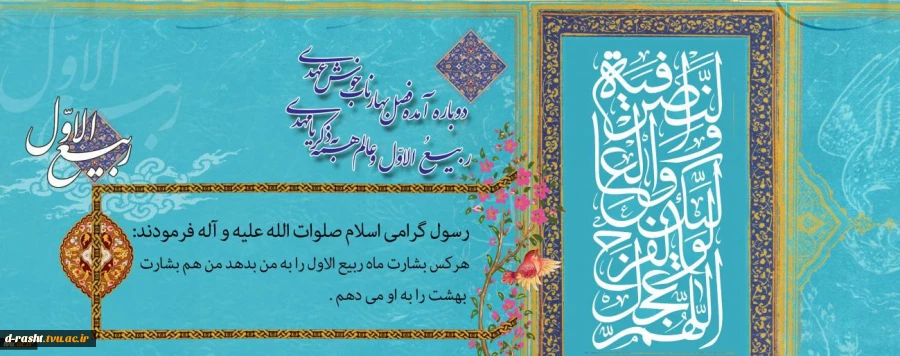 اللّهمّ عجّل لولیّک الفرج والعافیة والنّصر
دوباره آمده فصل بهار ناب خوش عهدی
ربیعُ الاوّل و عالم همه به ذکر یا مهدی
ربیع الاوّل
رسول گرامی اسلام صلوات الله علیه و آله فرمودند:
هرکس بشارت ماه ربیع الاول را به من بدهد من هم بشارت
بهشت را به او می دهم .
d-rasht.tvu.ac.ir